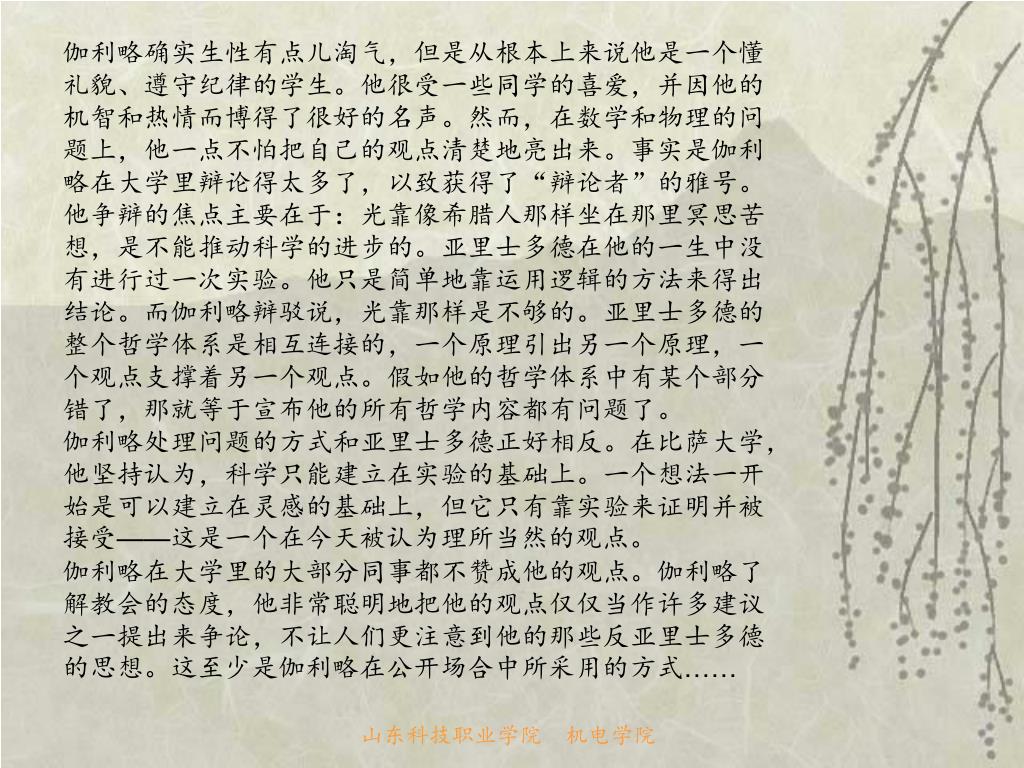 伽利略确实生性有点儿淘气，但是从根本上来说他是一个懂
礼貌、遵守纪律的学生。他很受一些同学的喜爱，并因他的
机智和热情而博得了很好的名声。然而，在数学和物理的问
题上，他一点不怕把自己的观点清楚地亮出来。事实是伽利
略在大学里辩论得太多了，以致获得了“辩论者”的雅号。
他争辩的焦点主要在于：光靠像希腊人那样坐在那里冥思苦
想，是不能推动科学的进步的。亚里士多德在他的一生中没
有进行过一次实验。他只是简单地靠运用逻辑的方法来得出
结论。而伽利略辩驳说，光靠那样是不够的。亚里士多德的
整个哲学体系是相互连接的，一个原理引出另一个原理，一
个观点支撑着另一个观点。假如他的哲学体系中有某个部分
错了，那就等于宣布他的所有哲学内容都有问题了。
伽利略处理问题的方式和亚里士多德正好相反。在比萨大学，
他坚持认为，科学只能建立在实验的基础上。一个想法一开
始是可以建立在灵感的基础上，但它只有靠实验来证明并被
接受——这是一个在今天被认为理所当然的观点。
伽利略在大学里的大部分同事都不赞成他的观点。伽利略了
解教会的态度，他非常聪明地把他的观点仅仅当作许多建议
之一提出来争论，不让人们更注意到他的那些反亚里士多德
的思想。这至少是伽利略在公开场合中所采用的方式……
山东科技职业学院　机电学院